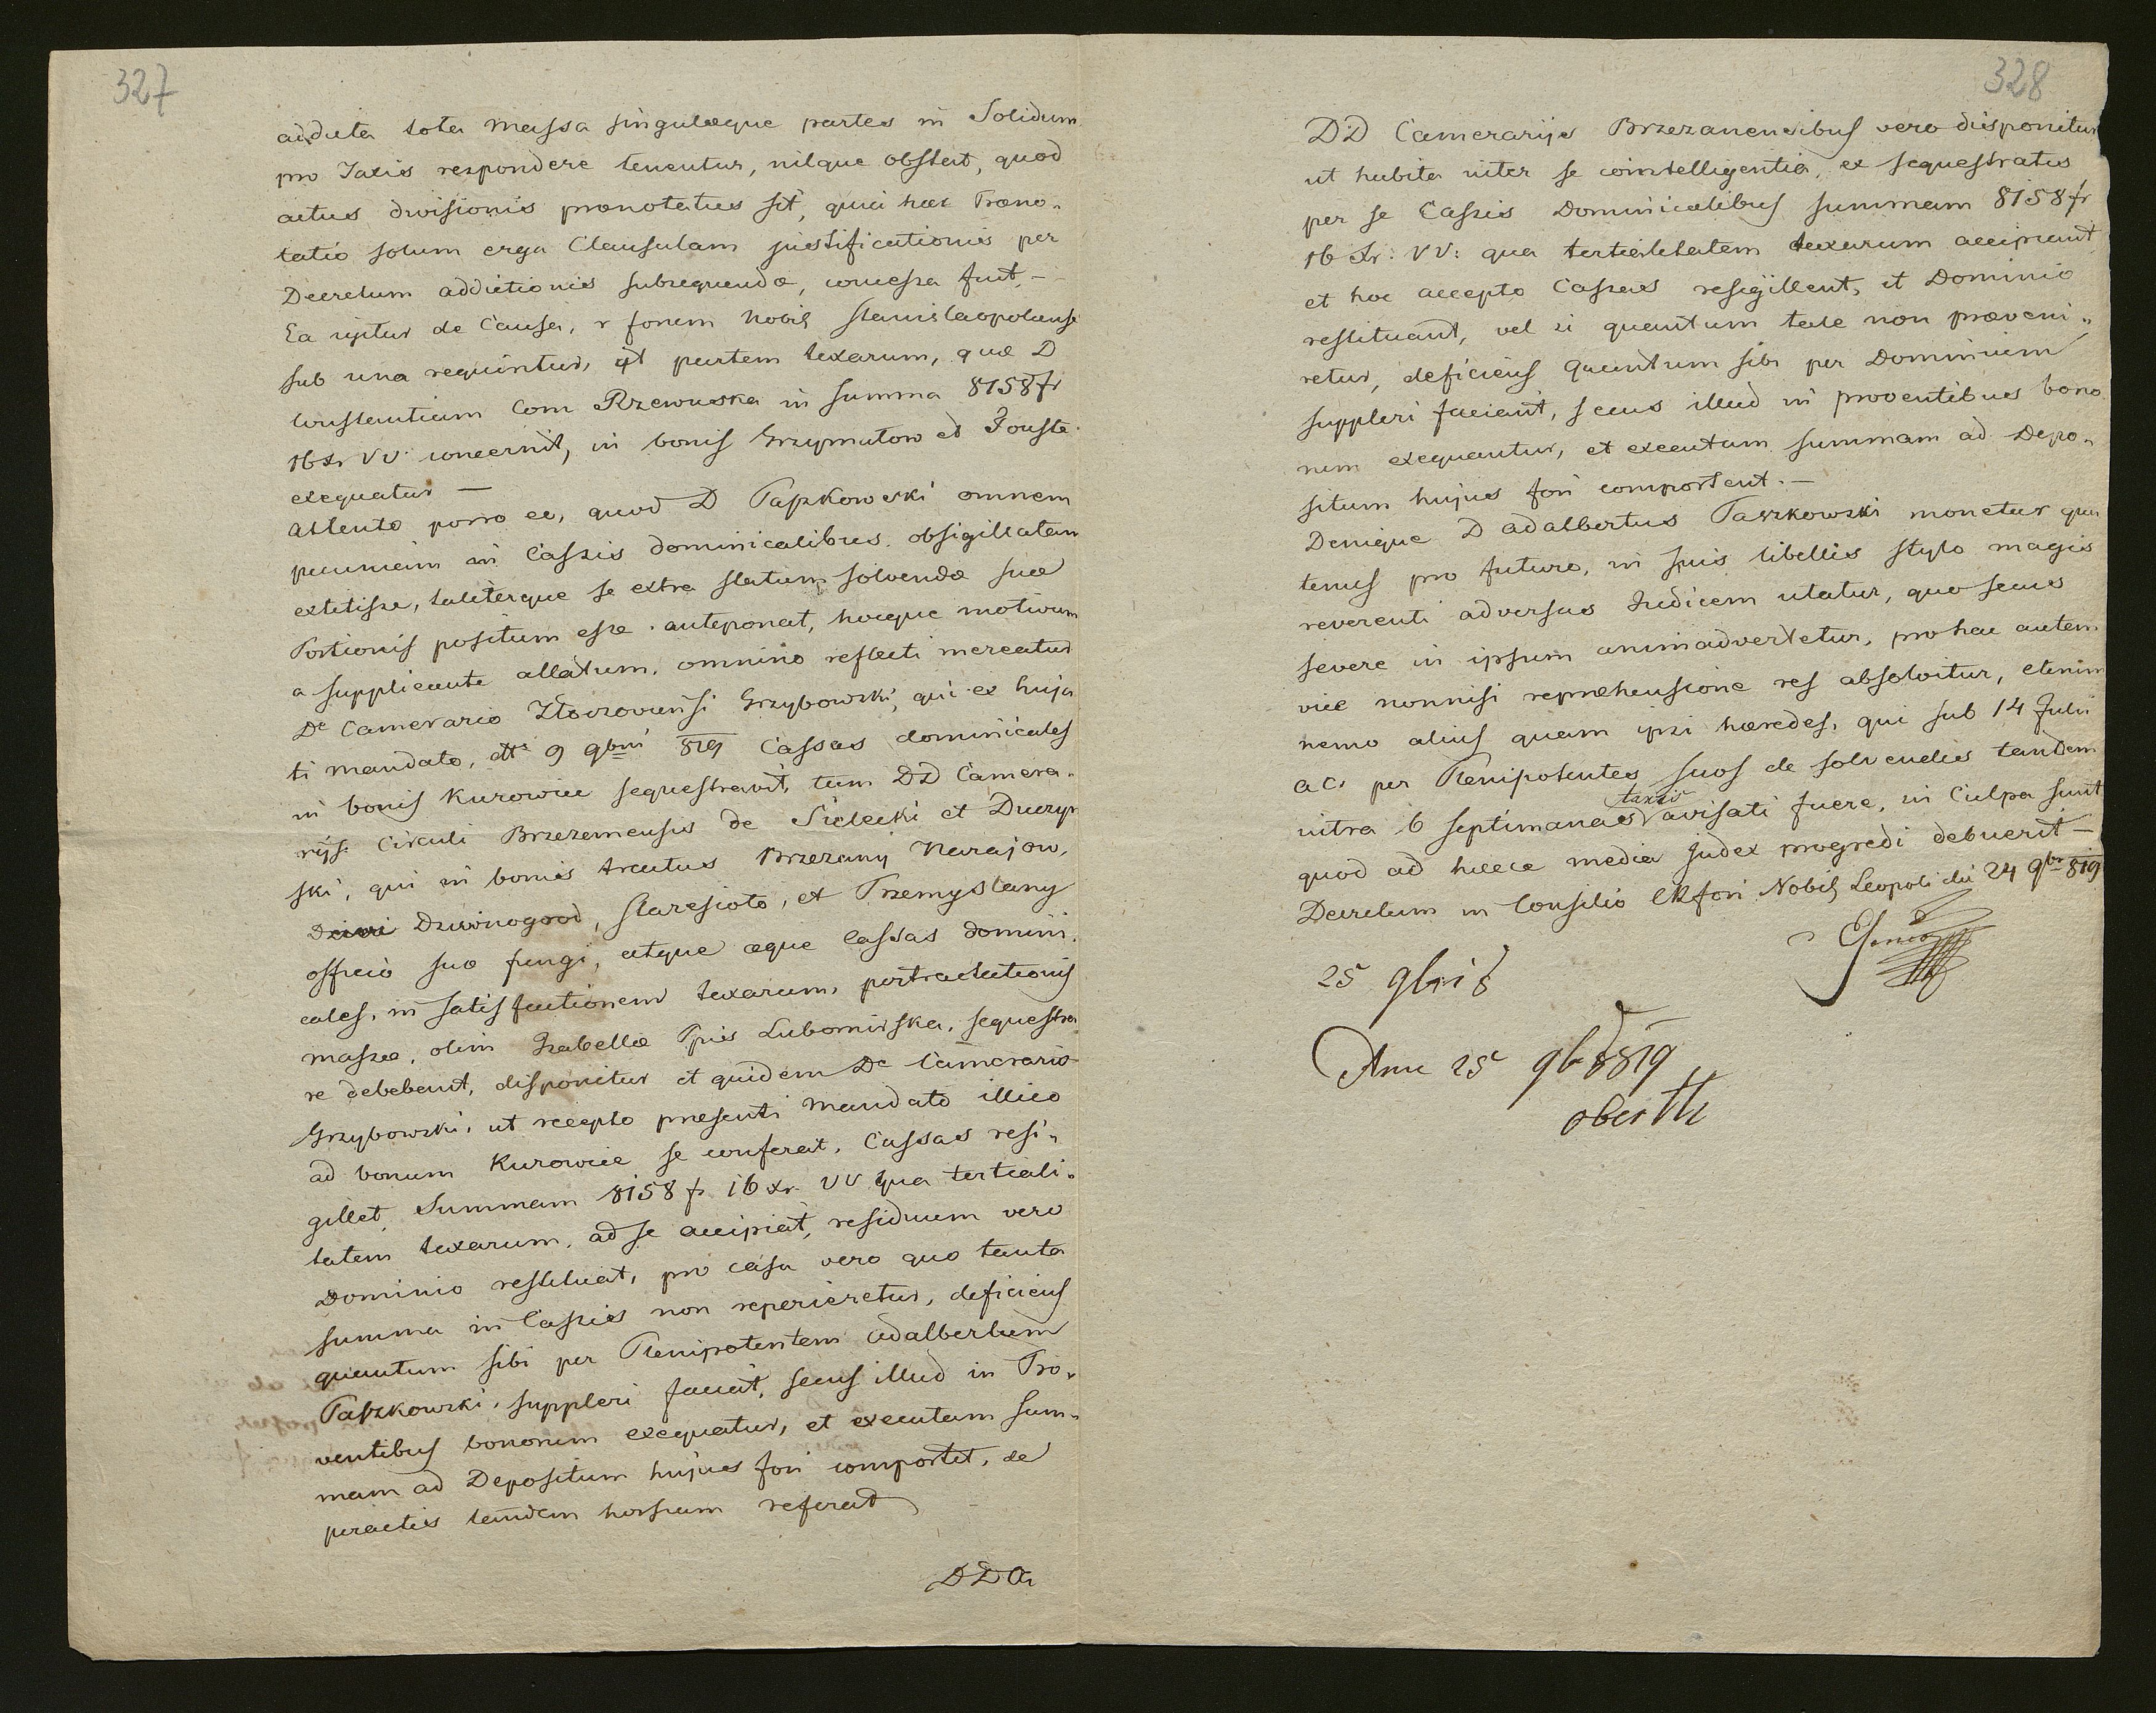 327
addicta tota massa singulæque partes in Solidum
pro Taxis respondere tenentur, nilque obstat, quod
actus divisionis prænotatus sit, quia hæc Præno„
tatio solum erga Clausulam justificationis per
Decretum addictionis subsequendæ, concessa fuit, —
Ea igitur de Causa, r forum Nobil Stanislaopoliense
sub una requiritur, qt partem taxarum, quæ D
Constantiam Com Rzewuska in summa 8158 fr
16 Xr VV. concernit, in bonis Grzymałow et Touste
exequatur —
Attento porro eo, quod D Paszkowski omnem
pecuniam in Cassis dominicalibus obsigillatam
extitisse, taliterque se extra statum solvendæ suæ
Portionis positum esse anteponat, hocque motivum
a supplicante allatum, omnino reflecti mereatur
De Camerario Złoczoviensi Grzybowski, qui ex huja
ti mandato, dtt 9 9bris 819 Cassas dominicales
in bonis Kurowice sequestravit, tum DD Camera„
rijs Circuli Brzezanensis de Sielecki et Duczyn
ski, qui in bonis tractus Brzezany Narajow,
Dzwinogrod, Staresioło, et Przemyslany
officio suo fungi, atque æque Cassas domini„
cales, in satisfactionem taxarum, pertractationis
massæ, olim Izabellæ Ppis Lubomirska, sequestra
re debebant, disponitur et quidem De Camerario
Grzybowski, ut recepto præsenti mandato illico
ad bonum Kurowice se conferat, Cassas resi„
gillet, Summam 8158 fr 16 xr VV qua tertiali„
tatem taxarum, ad se accipiat, residuum vero
Dominio restituat, pro casu vero quo tanta
summa in Cassis non reperiretur, deficiens
quantum sibi per Plenipotentem Adalbertum
Paszkowski, suppleri faciat, secus illud in Pro„
ventibus bonorum exequatur, et executam sum„
mam ad Depositum hujus fori comportet, de
peractis tandem horsum referat
DD Cr
328
DD Camerarijs Brzezanensibus vero disponitur
ut habita inter se cointelligentia, ex sequestratis
per se Cassis Dominicalibus summam 8158 fr
16 Xr: VV: qua tertialitatem taxarum accipiant,
et hoc accepto Cassas resigillent, et Dominio
restituant, vel si quantum tale non præveni„
retur, deficiens quantum sibi per Dominium
suppleri faciant, secus illud in proventibus bono
rum exequantur, et executam summam ad Depo„
situm hujus fori comportent. —
Denique D Adalbertus Paszkowski monetur qua
tenus pro futuro, in suis libellis stylo magis
reverenti adversus Judicem utatur, quo secus
severe in ipsum animadvertetur, pro hac autem
vice nonnisi reprehensione res absolvitur, etenim
nemo alius quam ipsi hæredes, qui sub 14 Julii
a c. per Plenipotentes suos de solvendis tandem
intra 6 septimanas taxis avisati fuere, in Culpa sunt
quod ad hæcce media Judex progredi debuerit —
Decretum in Consilio CR fori Nobil Leopoli die 24 9br 819
25 9bris
25 9b 819